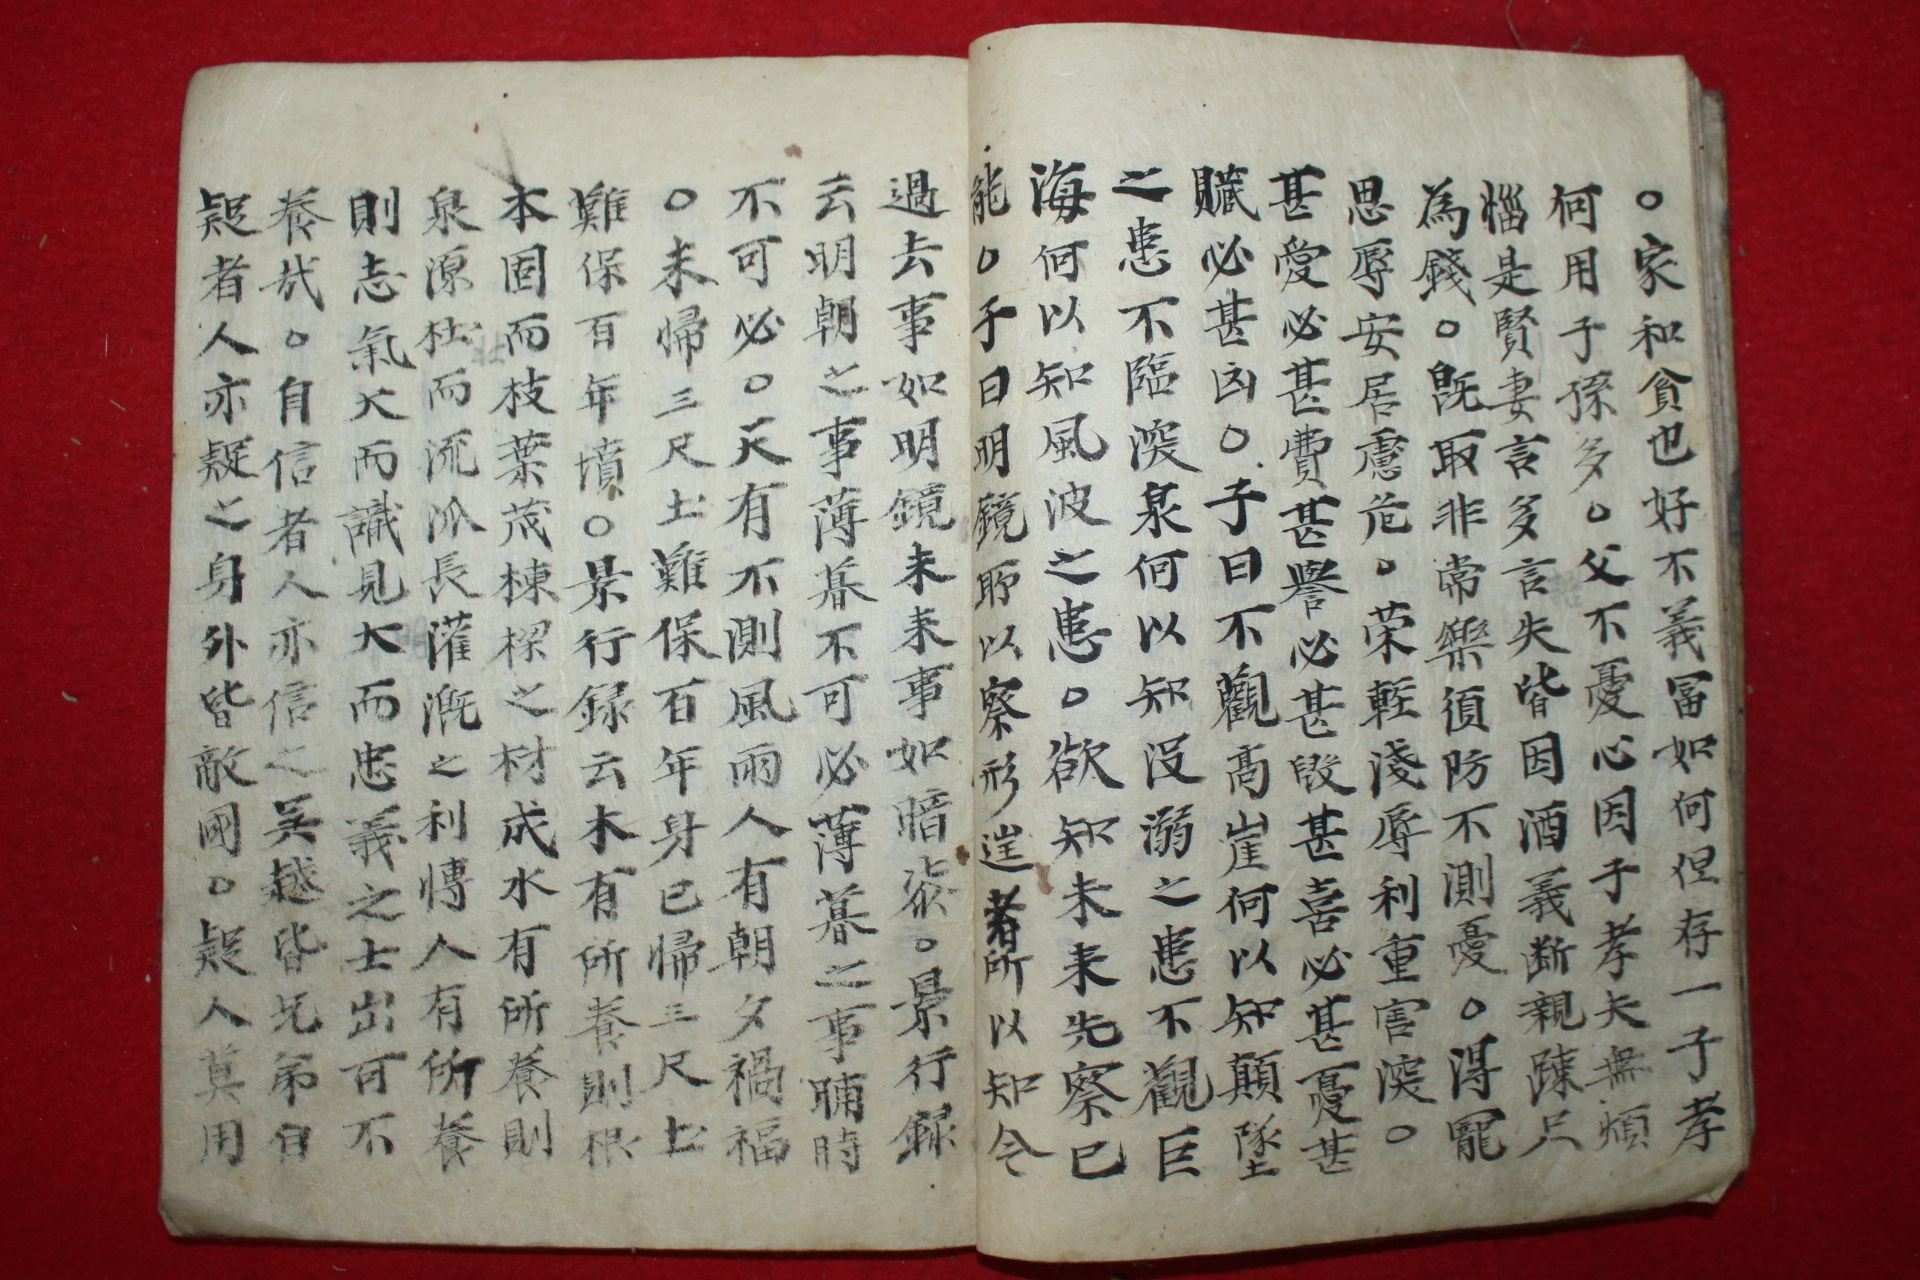 ○家和貧也好不義冨如何但存一子孝
何用子孫多○父不憂心因子孝夫無煩
惱是賢妻言多言失皆因酒義断親踈只
為錢○旣取非常樂須防不測憂○淂寵
思辱安居慮危○荣輊淺辱利重害深○
甚愛必甚費甚譽必甚毀甚喜必甚憂甚
贓必甚凶○子曰不觀髙崖何以知顛墜
之患不臨深泉何以知沒溺之患不觀巨
海何以知風波之患○欲知未来先察已
能○子曰明鏡所以察形徃者所以知今
過去事如明鏡未来事如暗漆○景行録
云明朝之事薄暮不可必薄暮之事晡時
不可必○天有不測風雨人有朝夕禍福
○未歸三尺土難保百年身已歸三尺土
難保百年墳○景行録云木有所養則根
本固而枝葉茂棟樑之材成水有所養則
泉源壯而流沠長灌漑之利愽人有所養
則志氣大而識見大而忠義之士出可不
養㢤○自信者人亦信之吴越皆兄弟自
疑者人亦疑之身外皆敵國○疑人莫用